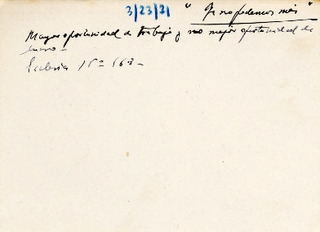 3/23/21 "Ya no podemos más"
Mayor oportunidad de trabajo y no mejor oportunidad de
Ecclesia 1567 -